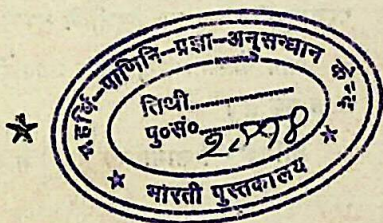 महर्षि-पाणिनि-प्रज्ञा-अनुसन्धान केन्द्र
तिथी..............
पु०सं०..............
भारती पुस्तकालय